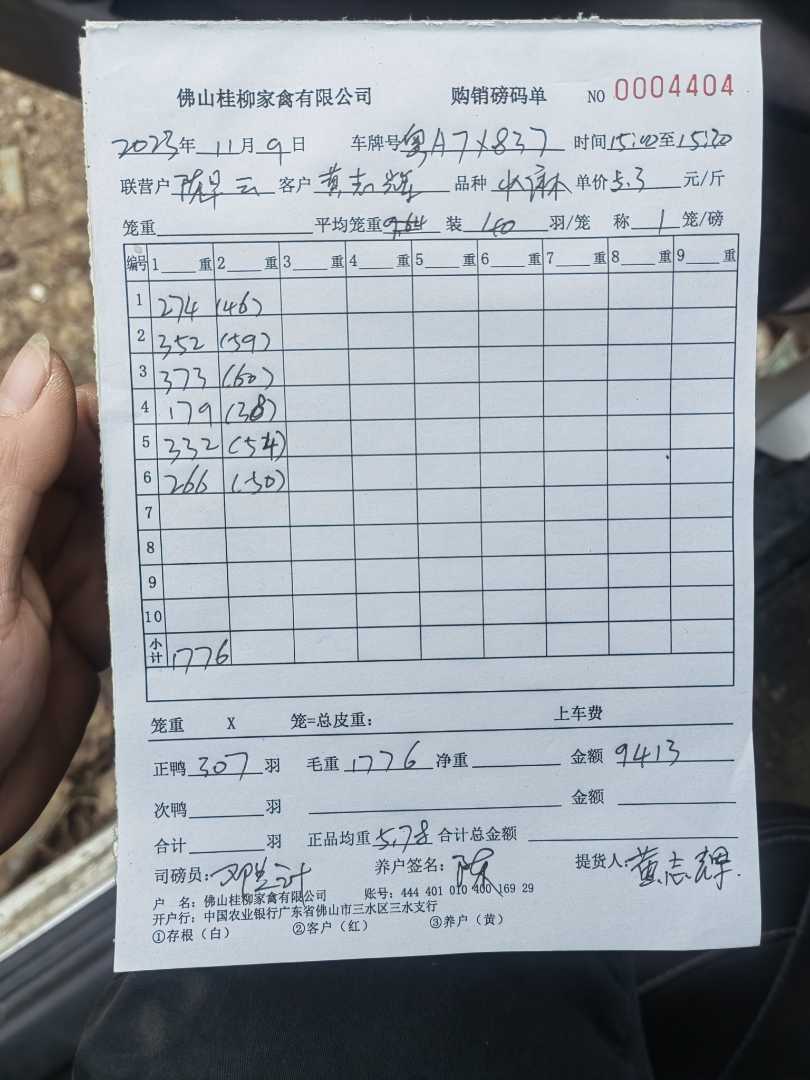 佛山桂柳家禽有限公司 购销磅码单 NO 0004404
2023年 11月 9日 车牌号 粤A7X837 时间15:00至15:20
联营户 客户 黄志辉 品种 水麻 单价5.3 元/斤
笼重 平均笼重 装 羽/笼 称 1 笼/磅
编号 1 重 2 重 3 重 4 重 5 重 6 重 7 重 8 重 9 重
1 274 (46)
2 352 (59)
3 373 (60)
4 179 (38)
5 332 (54)
6 266 (50)
7
8
9
10
小计 1776
笼重 X 笼=总皮重: 上车费
正鸭 307 羽 毛重 1776 净重 金额 9413
次鸭 羽 金额
合计 羽 正品均重 5.78 合计总金额
司磅员: 养户签名: 陈 提货人: 黄志辉
户 名: 佛山桂柳家禽有限公司 账号: 444 401 010 400 169 29
开户行: 中国农业银行广东省佛山市三水区三水支行
①存根（白） ②客户（红） ③养户（黄）